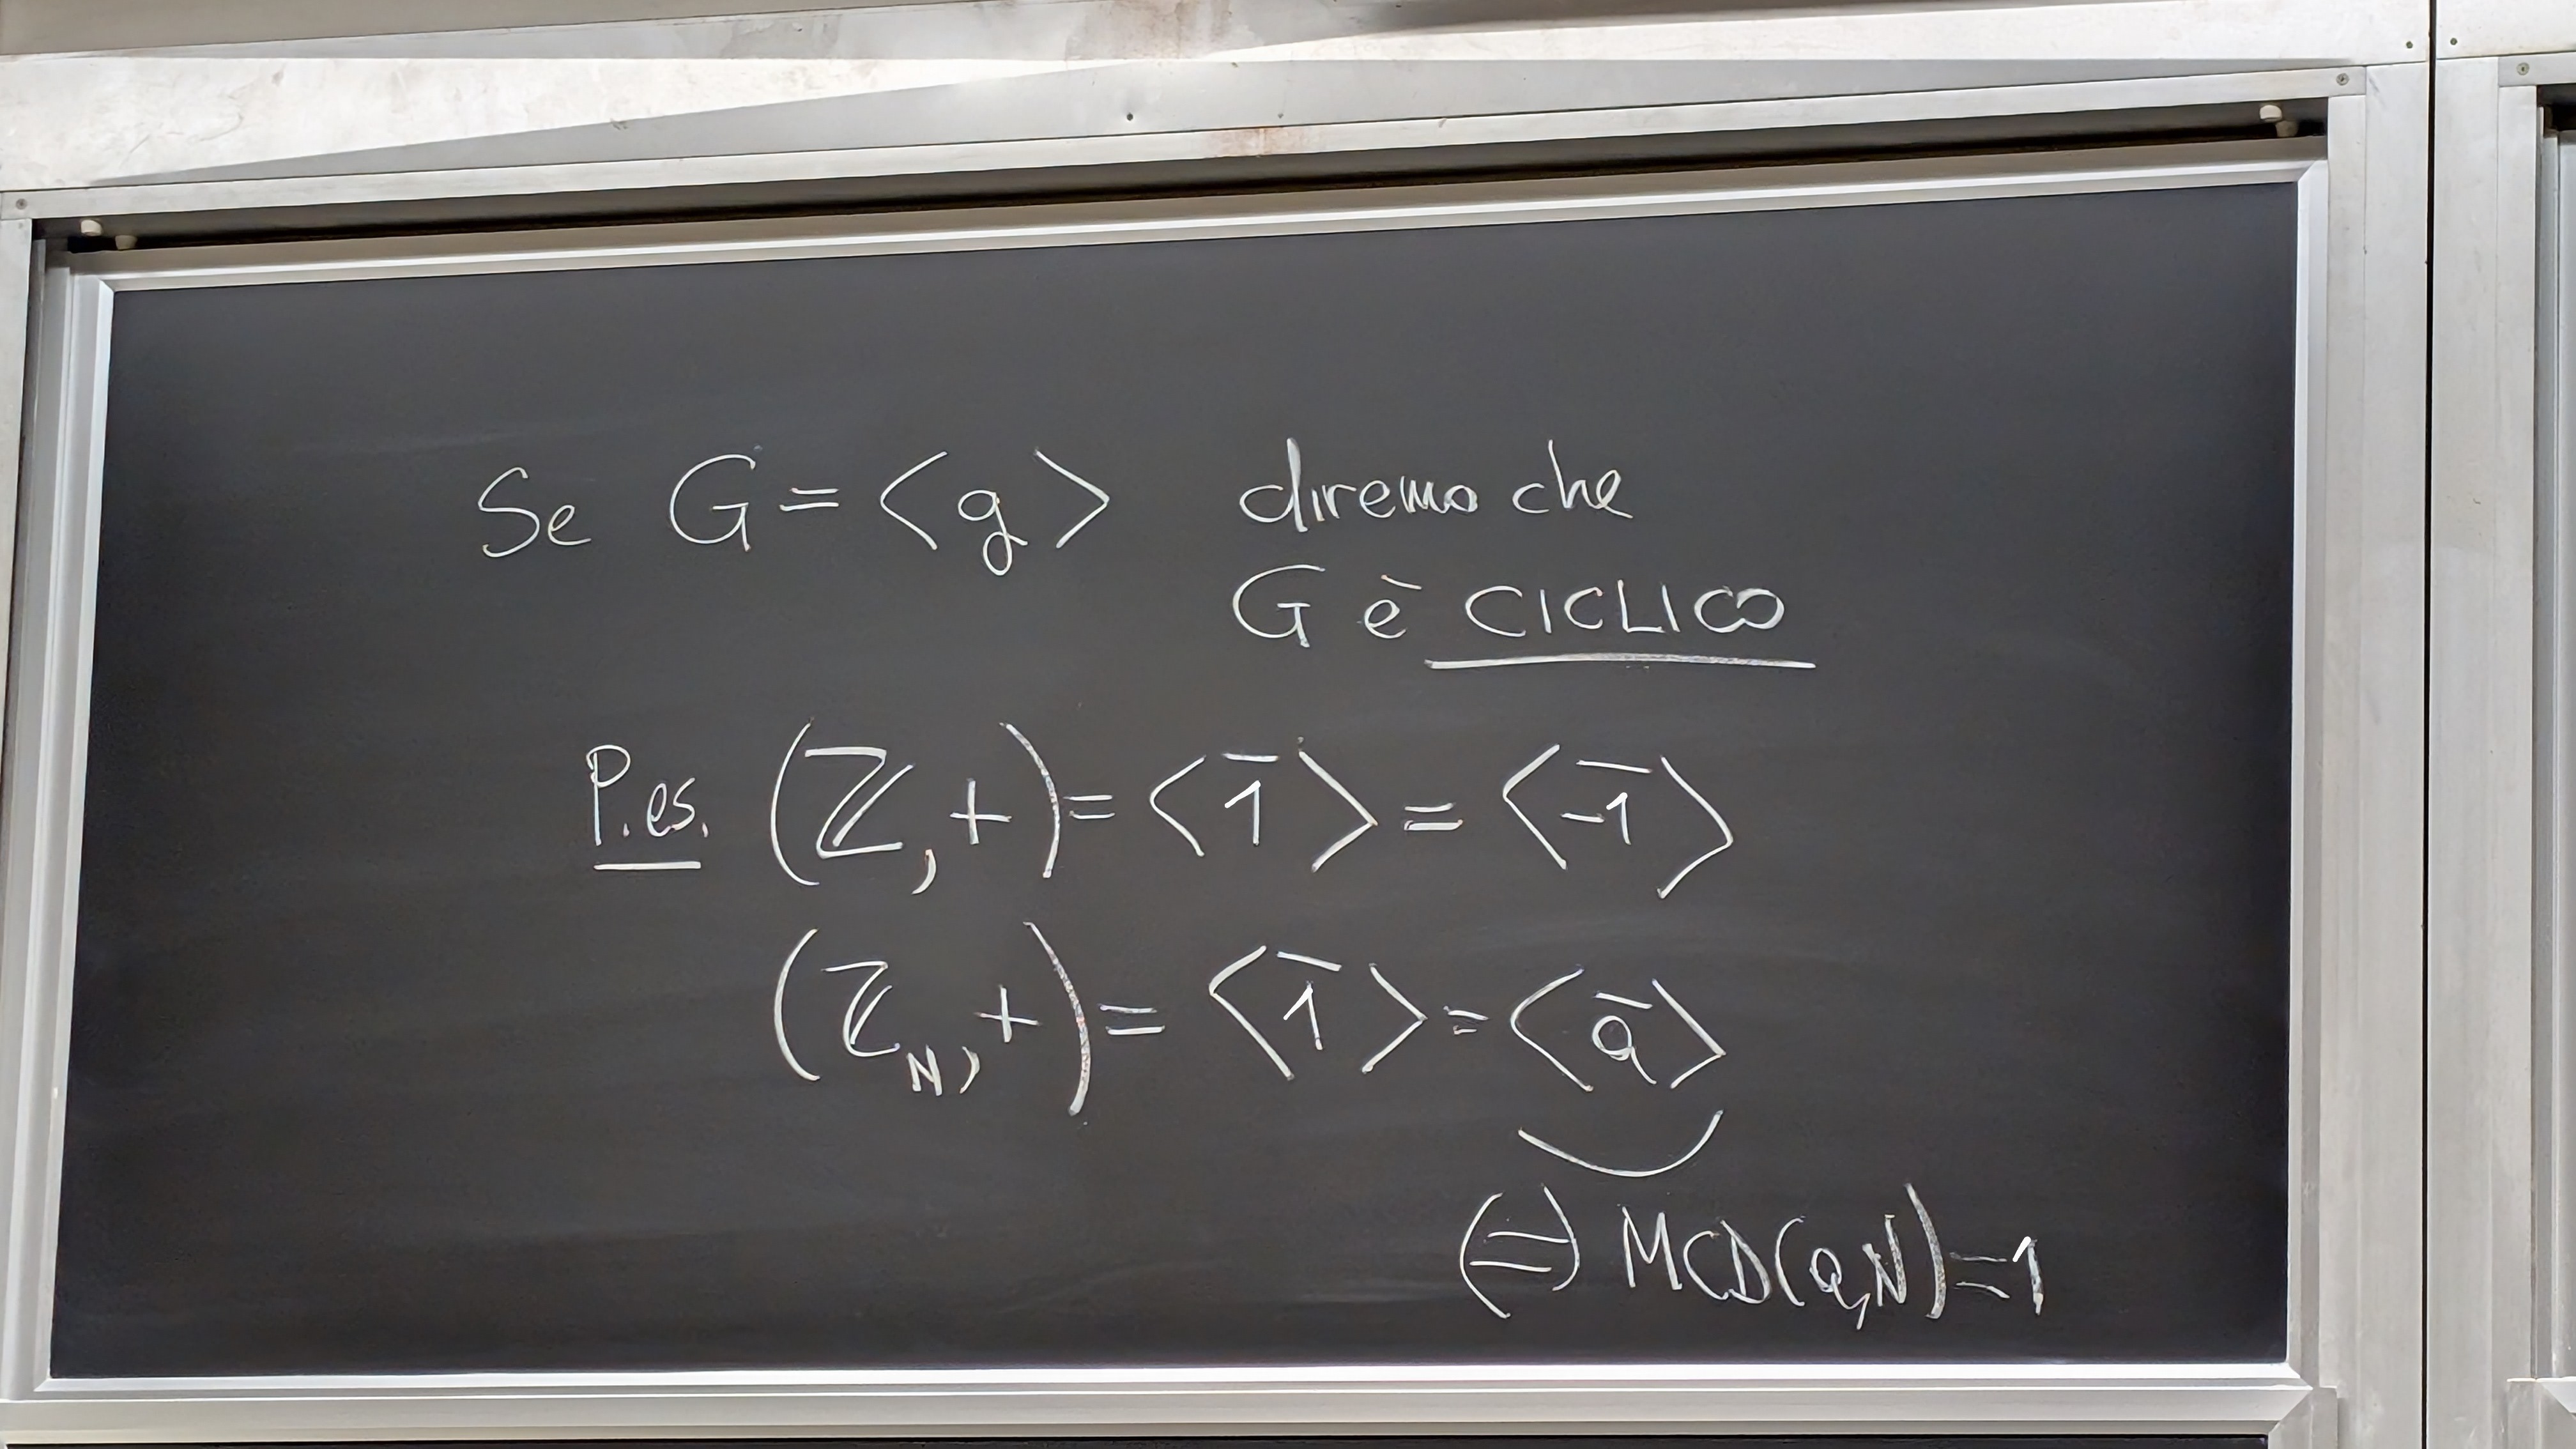 Se G = <g> diremo che
G è CICLICO
P.es. (ℤ, +) = <1̄> = <-1̄>
(ℤ_N, +) = <1̄> = <ā>
(=) MCD(a,N)=1